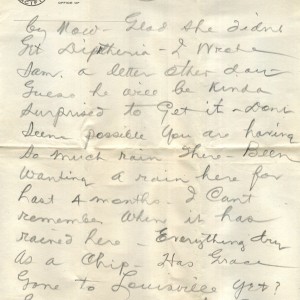 OFFICE OF
by Now - Glad she didnt
Git Diptheria - I Wrote
Sam. a letter other day
Guess he will be Kinda
Surprised to Get it - Dont
Seem possible You are having
So much rain There - Been
Wanting a rain here for
Last 4 months - I Cant
remember When it has
rained here - Everything dry
As a Chip - Has Grace
Gone to Louisville Yet?